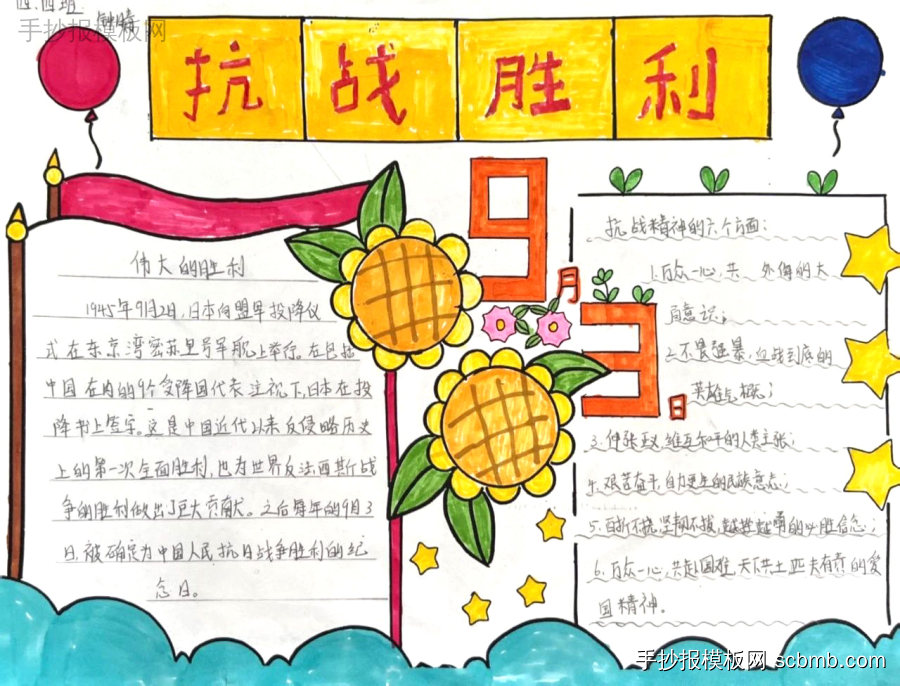 四.四班
手抄报模板网
抗战胜利
9月3日
伟大的胜利
1945年9月2日,日本向盟军投降仪
式在东京湾密苏里号军舰上举行。在包括
中国在内的9个受降国代表注视下,日本在投
降书上签字。这是中国近代以来反侵略历史
上的第一次全面胜利,也为世界反法西斯战
争的胜利做出了巨大贡献。之后每年的9月3
日,被确定为中国人民抗日战争胜利的纪
念日。
抗战精神的六个方面:
1.万众一心,共 外侮的大
局意识;
2.不畏强暴,血战到底的
英雄气概;
3.伸张正义 维互和平的人类主张;
4.艰苦奋斗 自力更生的民族意志;
5.百折不挠,坚韧不拔,越挫越勇的必胜信念;
6.万众一心,共赴国难,天下兴亡匹夫有责的爱
国精神。
手抄报模板网 scbmb.com